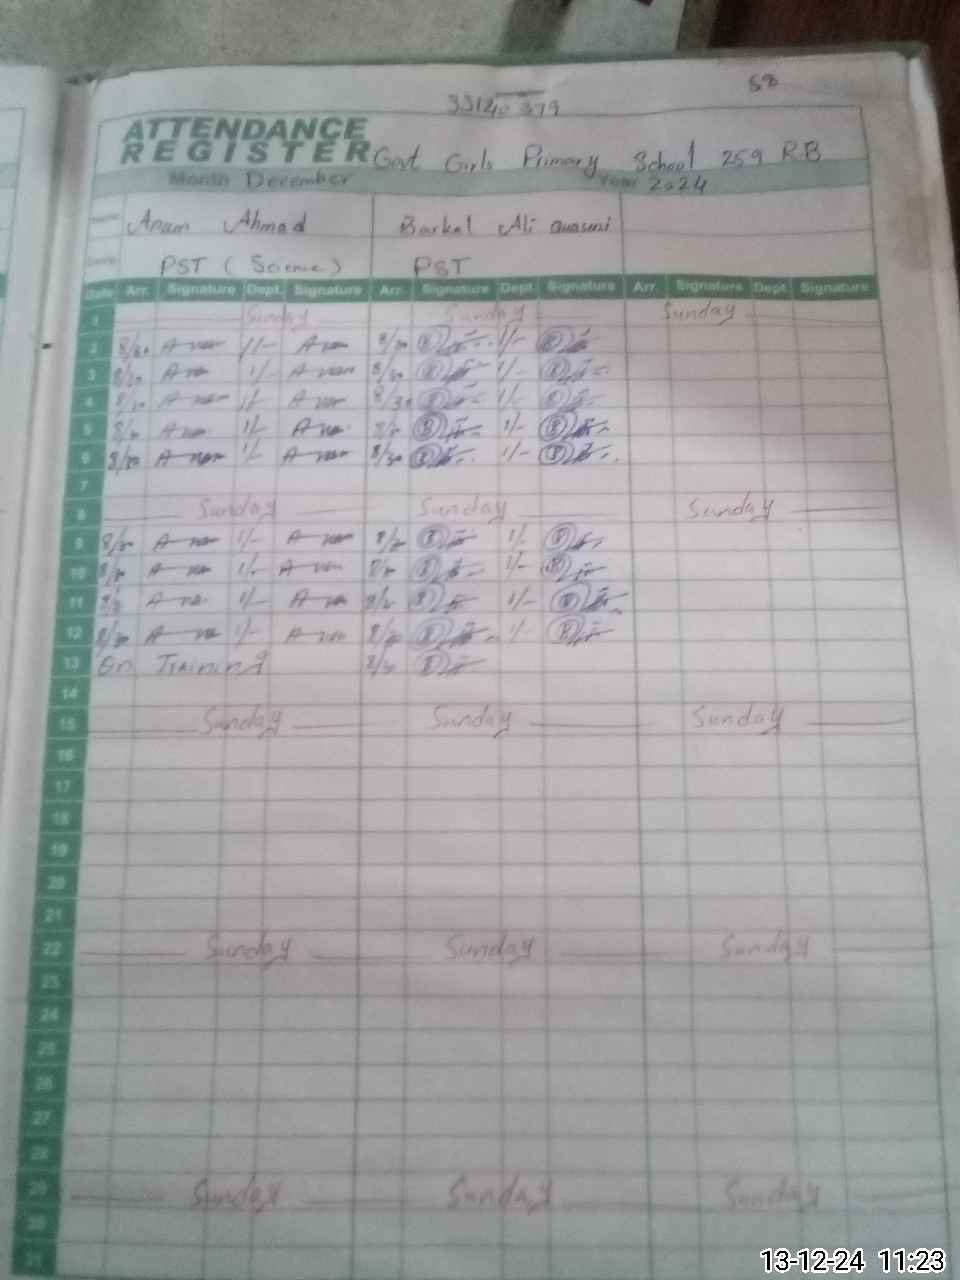 58
33120379
ATTENDANCE
REGISTER Govt Girls Primary School 259 RB
Month December Year 2024
Name Anam Ahmad Barkat Ali Quasmi
PST (Science) PST
Date Arr. Signature Dept. Signature Arr. Signature Dept. Signature Arr. Signature Dept. Signature
1 Sunday Sunday Sunday
2 8/30 Anam 1/- Anam 8/30 1/-
3 8/30 Anam 1/- Anam 8/30 1/-
4 8/30 Anam 1/- Anam 8/30 1/-
5 8/30 Anam 1/- Anam 8/30 1/-
6 8/30 Anam 1/- Anam 8/30 1/-
7
8 Sunday Sunday Sunday
9 8/30 Anam 1/- Anam 8/30 1/-
10 8/30 Anam 1/- Anam 8/30 1/-
11 8/30 Anam 1/- Anam 8/30 1/-
12 8/30 Anam 1/- Anam 8/30 1/-
13 On Training 8/30
14
15 Sunday Sunday Sunday
16
17
18
19
20
21
22 Sunday Sunday Sunday
23
24
25
26
27
28
29 Sunday Sunday Sunday
30
31
13-12-24 11:23